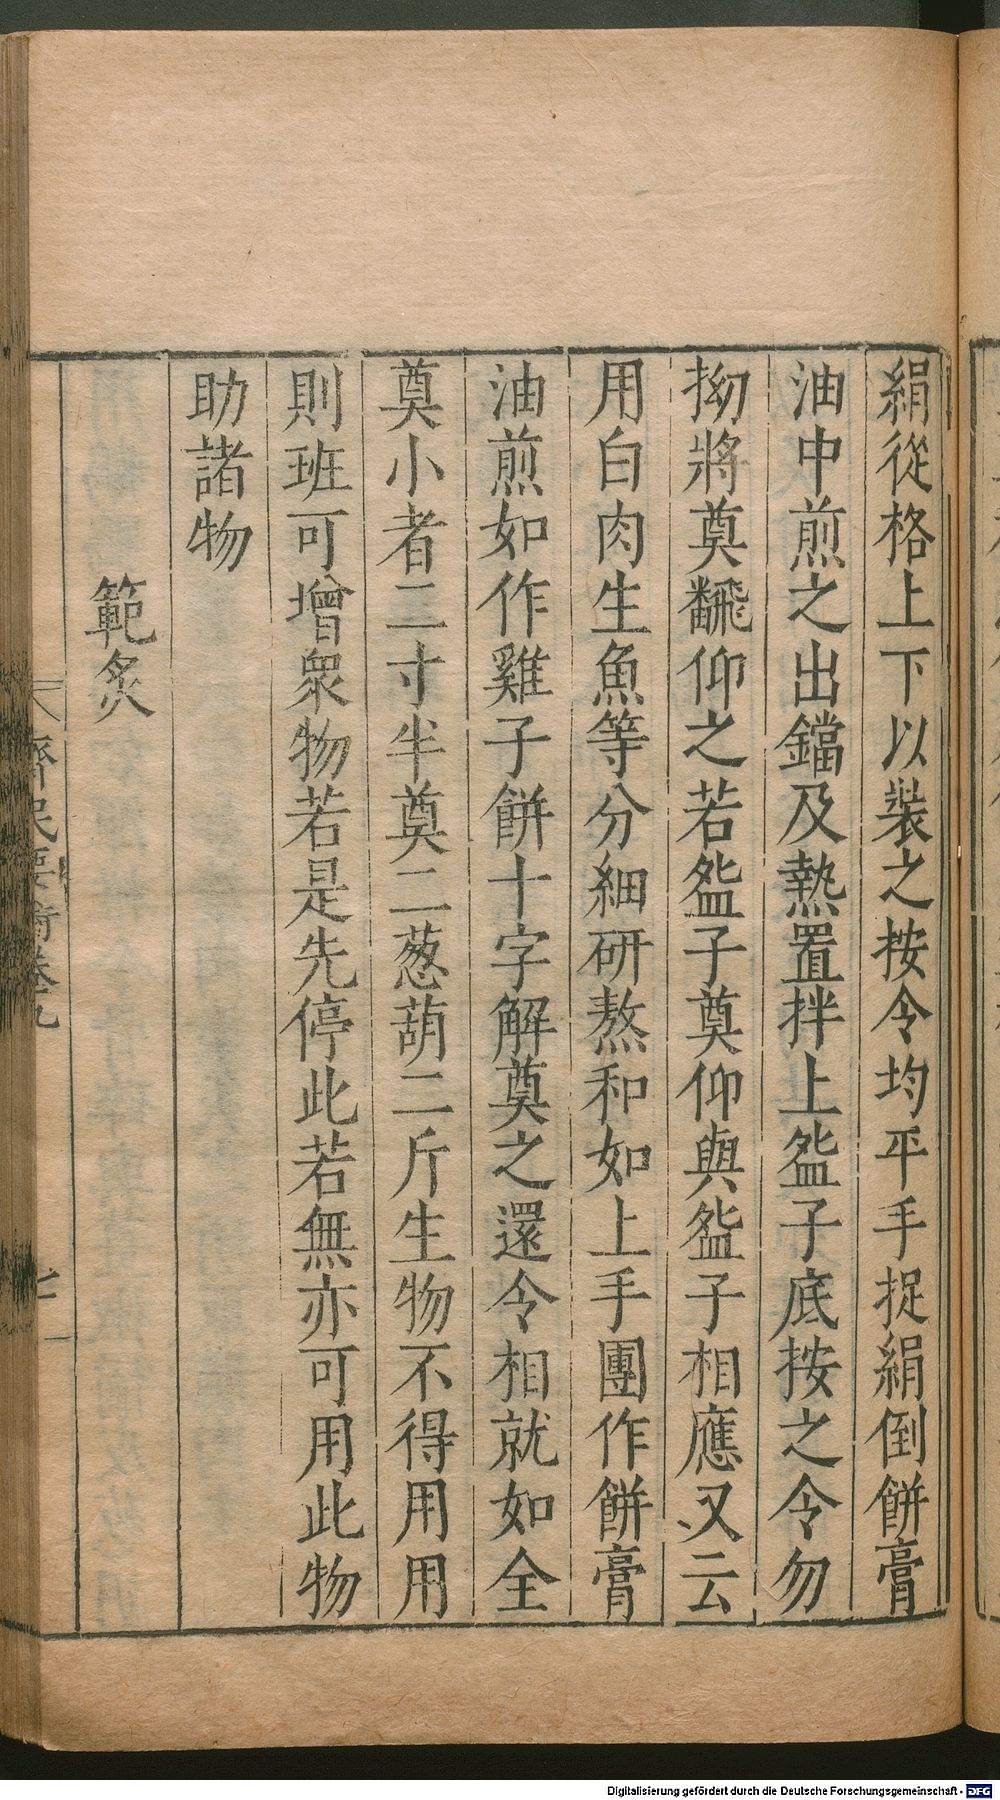 絹從格上下以裝之按令均平手捉絹倒餅膏
油中煎之出鐺及熱置拌上盌子底按之令勿
拗將奠飜仰之若盌子奠仰與盌子相應又云
用白肉生魚等分細研熬和如上手團作餅膏
油煎如作雞子餅十字解奠之還令相就如全
奠小者二寸半奠二葱葫二斤生物不得用用
則班可增眾物若是先停此若無亦可用此物
助諸物
範炙
齊民要術卷九
七
Digitalisierung gefördert durch die Deutsche Forschungsgemeinschaft - DFG